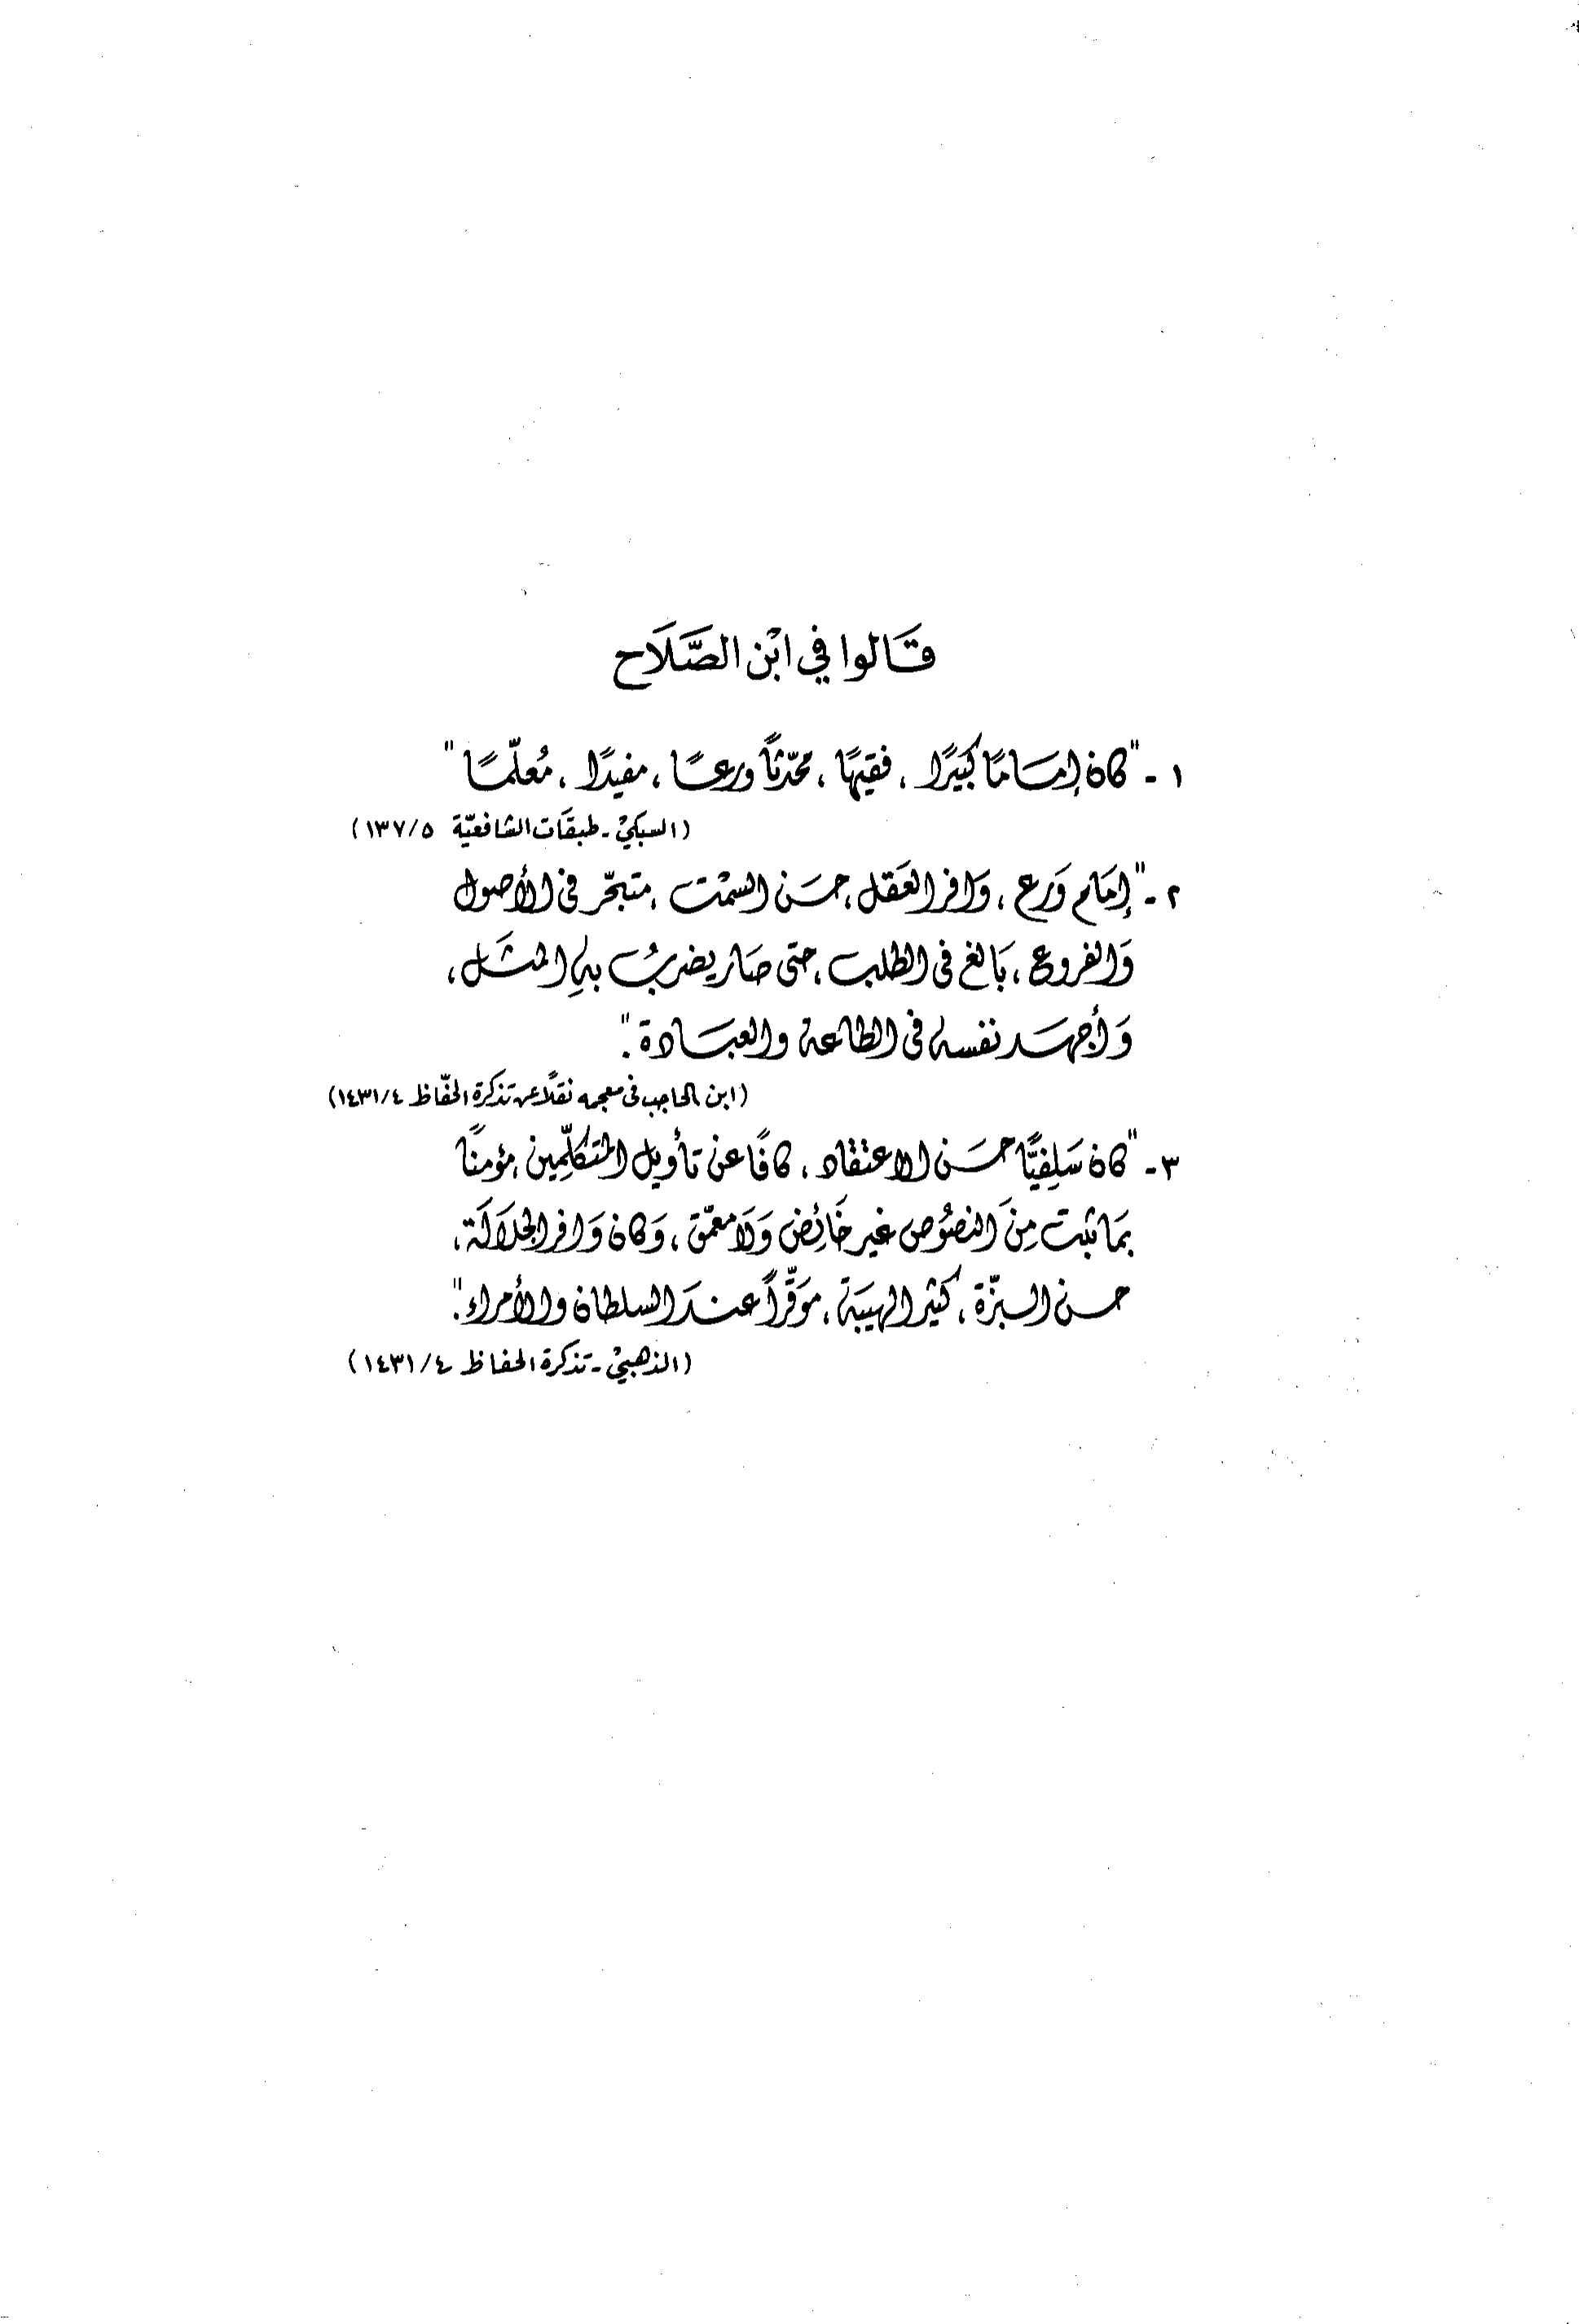 قَالوا في ابْن الصَّلَاح
١ - "كان إمَامًا كبيرًا ، فقيهًا ، محدّثاً ورعًا ، مفيدًا ، مُعلّمًا"
(السبكيْ - طبقَات الشافعيّة ١٣٧/٥)
٢ - "إمَام وَرع ، وَافر العَقل ، حسَن السمْت ، متبحّر في الأصول
وَالفروع ، بَالغ في الطلب ، حتى صَار يضربُ بهِ المثَل ،
وَأجهَد نفسه في الطاعة والعبَادة" .
(ابن الحاجب في معجمه نقلًا عن تذكرة الحفّاظ ١٤٣١/٤)
٣ - "كان سَلِفيًّا حسَن الاعتقاد ، كافًا عن تأويل المتكلِّمين ، مؤمنًا
بمَا ثبت مِنَ النصُوص غير خَائِض وَلَا معمّق ، وَكان وَافر الجلَالَة ،
حسن البزّة ، كثير الهيبَة ، موَقّراً عندَ السلطان والأمراء" .
(الذهبيْ - تذكرة الحفاظ ١٤٣١/٤)